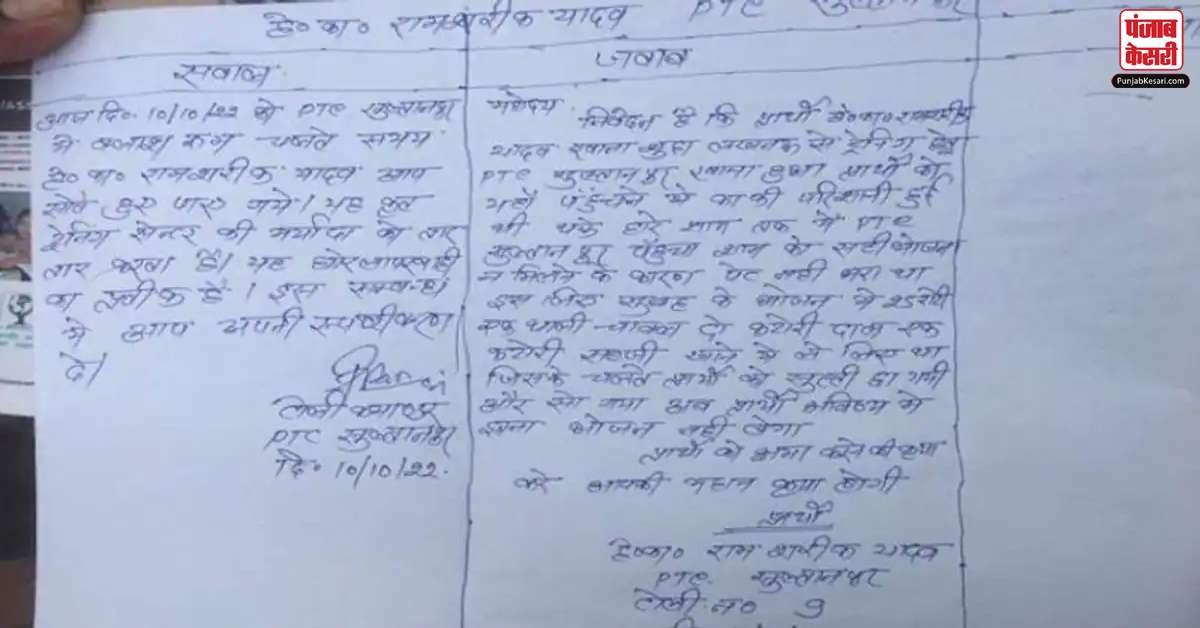 हे०का० रामशरीक यादव PTC सुल्तानपुर
पंजाब
केसरी
PunjabKesari.com
सवाल
आज दि० 10/10/22 को PTC सुल्तानपुर
मे क्लाश रूम चलते समय
हे०का० रामशरीक यादव आप
सोते हुए पाए गये। यह कृत
ट्रेनिंग सेन्टर की मर्यादा को तार
तार करता है। यह घोर लापरवाही
का प्रतीक है। इस सम्बन्ध
मे आप अपनी स्पष्टीकरण
दे।
टोली कमाण्डर
PTC सुल्तानपुर
दि० 10/10/22.
जवाब
महोदय
निवेदन है कि प्रार्थी हे०का० रामशरीक
यादव लखनऊ से ट्रेनिंग हेतु
PTC सुल्तानपुर रवाना हुआ प्रार्थी को
यहाँ पंहुचने मे काफी परिशानी हुई
थी थके हारे शाम तक मे PTC
सुल्तानपुर पहुंचा शाम को सही भोजन
न मिलने के कारण पेट नही भरा था
इस लिए सुबह के भोजन मे 25 रोटी
एक थाली चावल दो कटोरी दाल एक
कटोरी सब्जी खाने मे ले लिए था
जिसके चलते प्रार्थी को सुस्ती आ गयी
और सो गया अब प्रार्थी भविष्य मे
इतना भोजन नही लेगा
प्रार्थी को क्षमा करने की कृपा
करे आपकी महान कृपा होगी
प्रार्थी
हे०का० राम शरीक यादव
PTC. सुल्तानपुर
टोली नं० 9